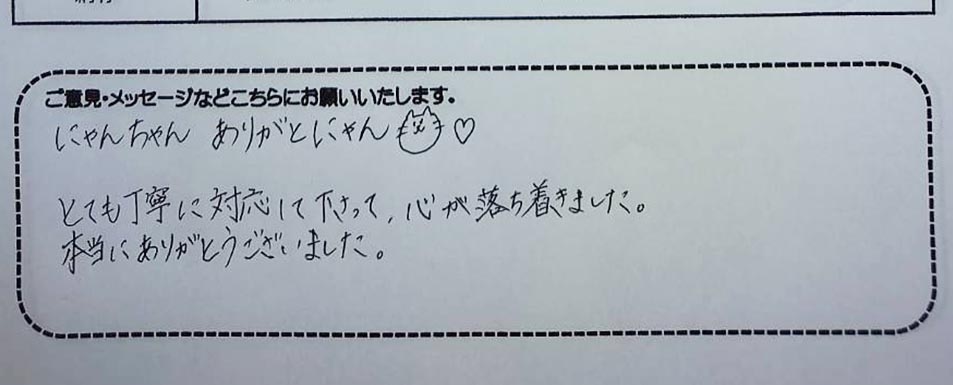 ご意見・メッセージなどこちらにお願いいたします。
にゃんちゃん ありがとにゃん♡
とても丁寧に対応して下さって、心が落ち着きました。
本当にありがとうございました。